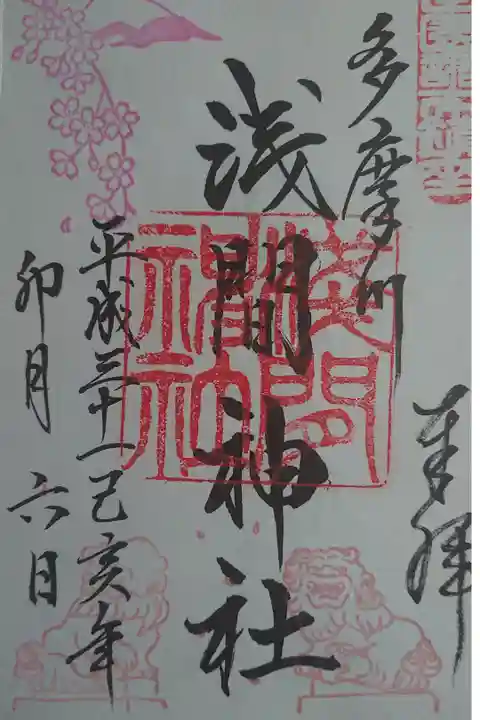 奉拝
多摩川
浅間神社
淺間神社
平成三十一己亥年
卯月六日